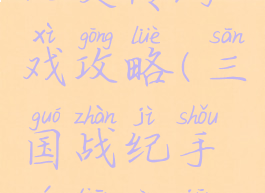 xì gōng lüè sān
戏攻略(三
guó zhàn jì shǒu
国战纪手